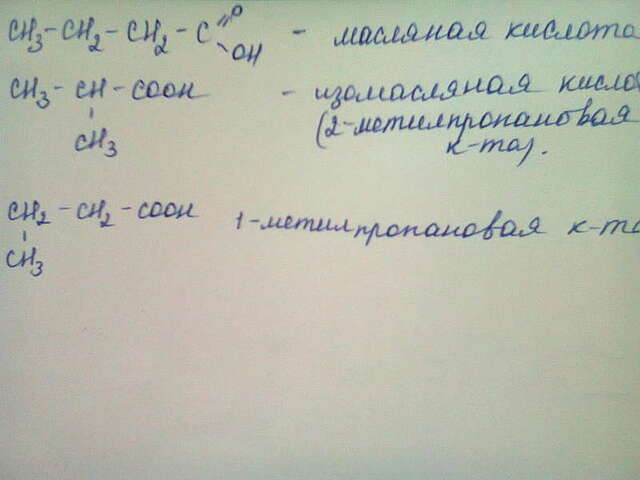 CH3-CH2-CH2-C=O-OH - масляная кислота
CH3-CH-COOH - изомасляная кисло
CH3 (2-метилпропановая
к-та).
CH2-CH2-COOH 1-метилпропановая к-та
CH3